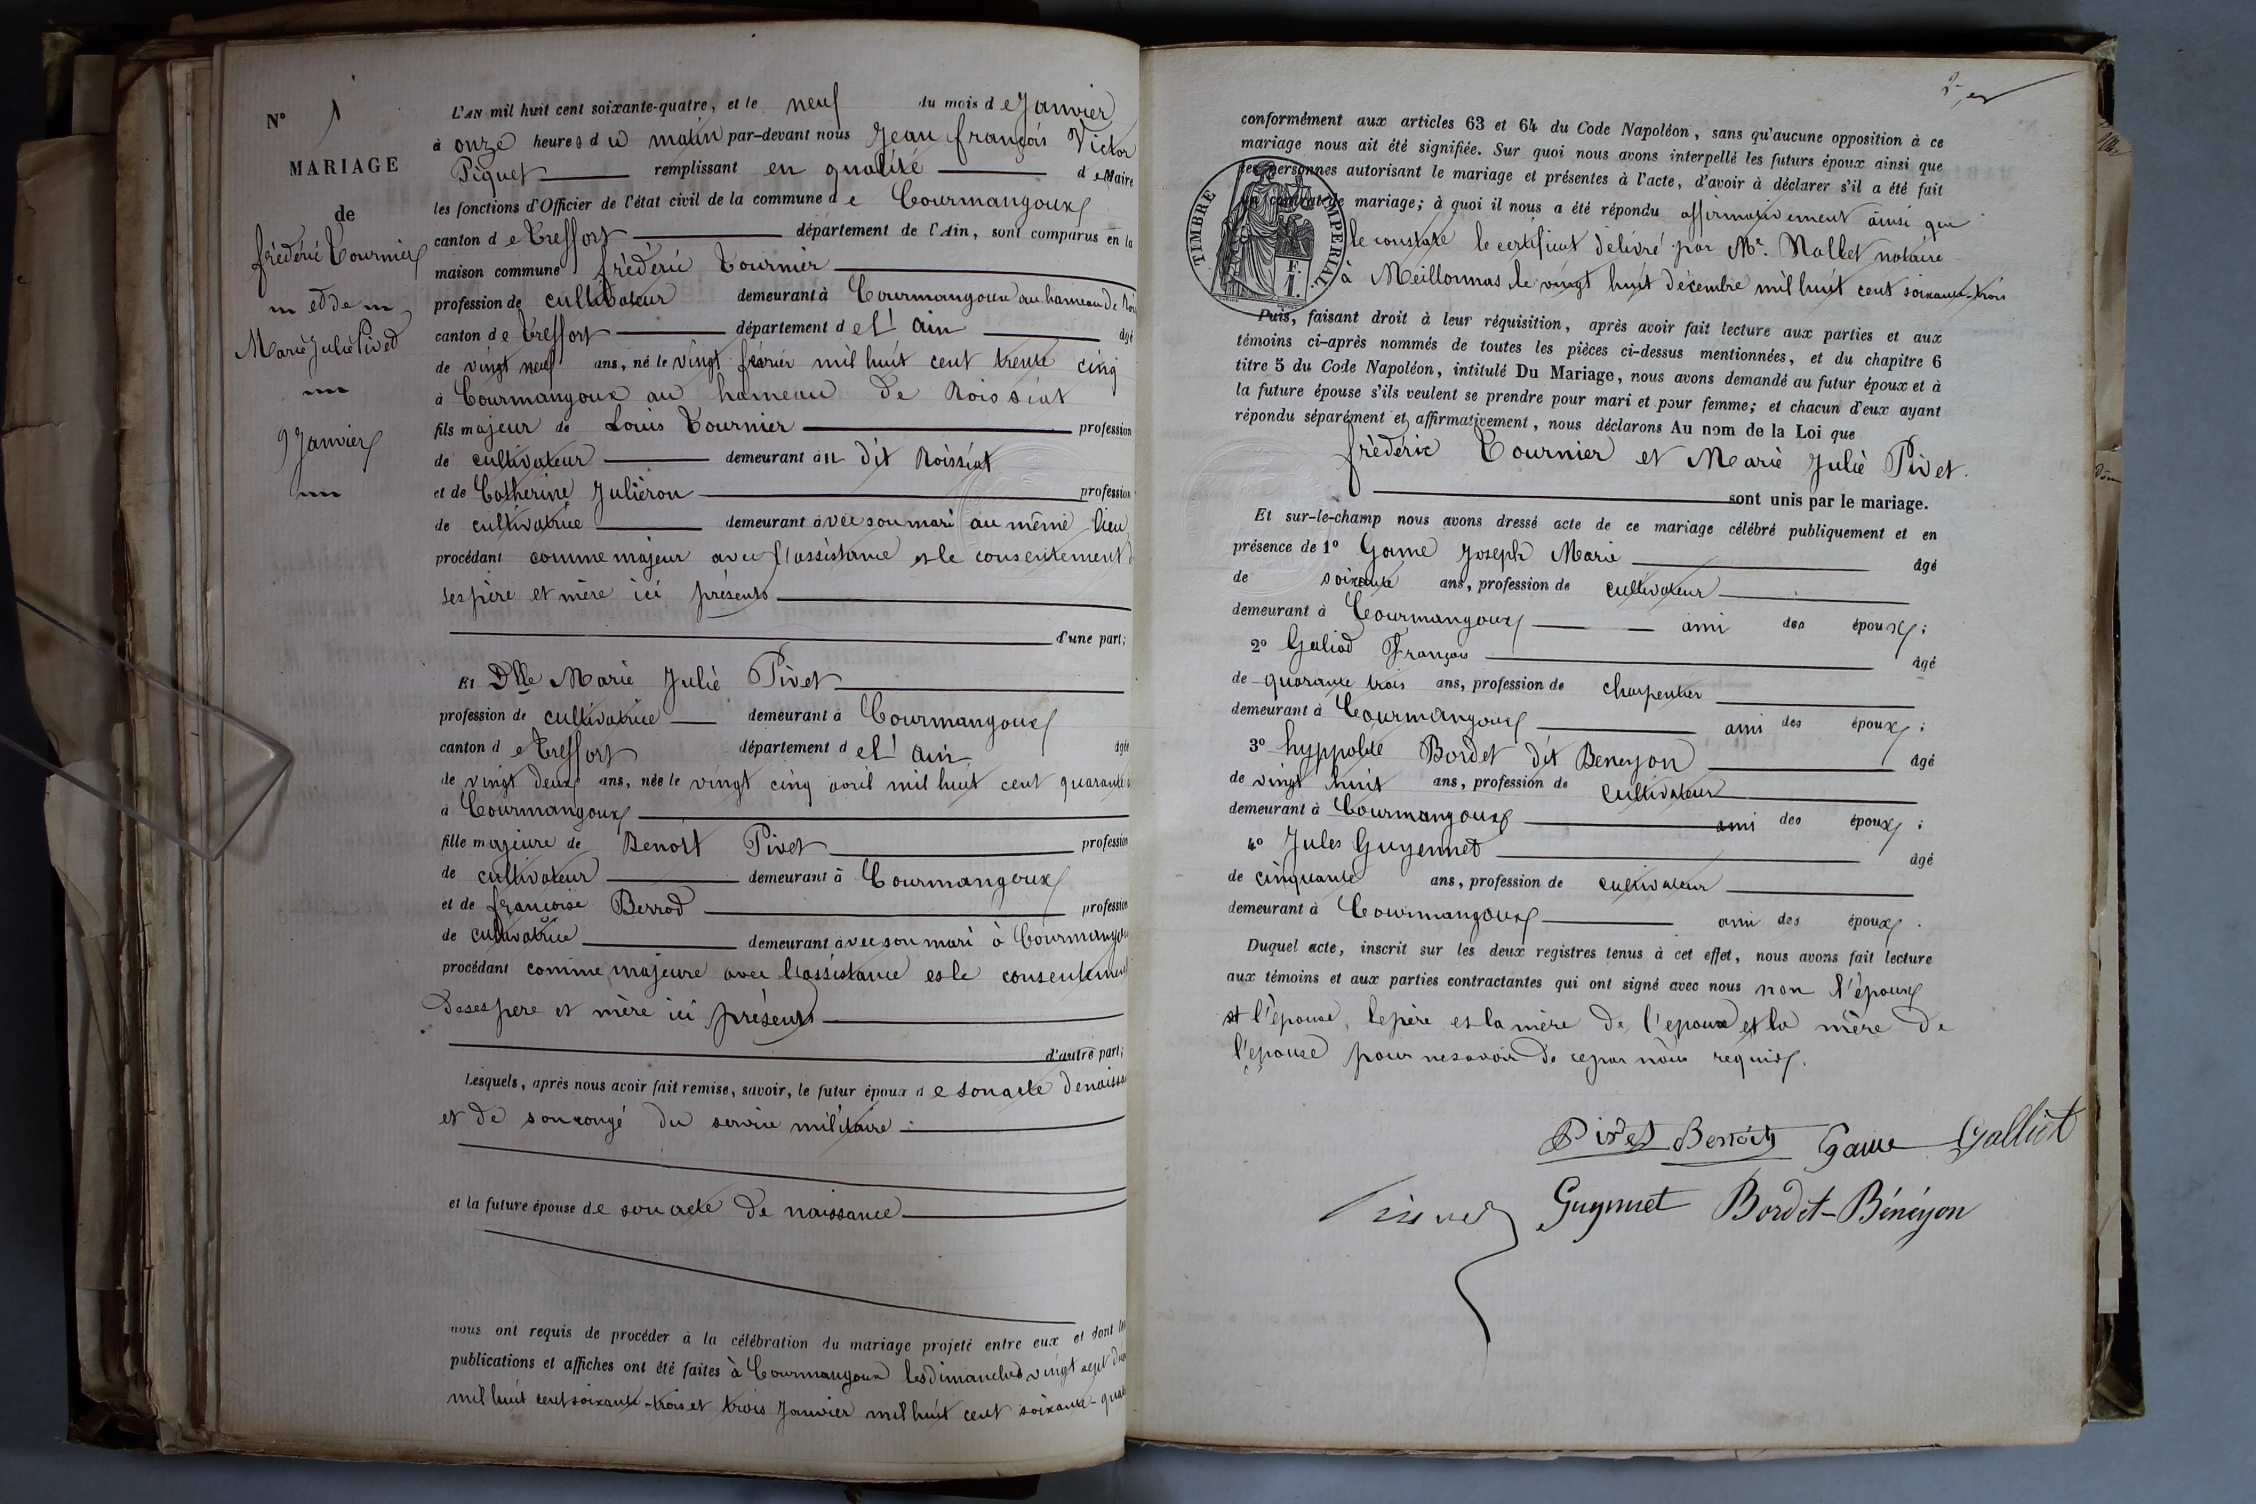 N° 1
MARIAGE
de
frédéric Tournier
et de
Marie Julie Pivet
9 Janvier
L'AN mil huit cent soixante-quatre, et le neuf du mois de Janvier
à onze heures du matin par-devant nous Jean françois Victor
Piquet remplissant en qualité de Maire
les fonctions d'Officier de l'état civil de la commune de Courmangoux
canton de Treffort département de l'Ain, sont comparus en la
maison commune frédéric Tournier
profession de cultivateur demeurant à Courmangoux au hameau de
canton de Treffort département de l'ain âgé
de vingt neuf ans, né le vingt février mil huit cent trente cinq
à Courmangoux au hameau de Roissiat
fils majeur de Louis Tournier profession
de cultivateur demeurant au dit Roissiat
et de Catherine Juliéron profession
de cultivatrice demeurant avec son mari au même lieu
procédant comme majeur avec l'assistance et le consentement de
ses père et mère ici présents
d'une part;
Et Dlle Marie Julie Pivet
profession de cultivatrice demeurant à Courmangoux
canton de Treffort département de l'ain âgée
de vingt deux ans, née le vingt cinq avril mil huit cent quarante
à Courmangoux
fille majeure de Benoit Pivet profession
de cultivateur demeurant à Courmangoux
et de françoise Berrod profession
de cultivatrice demeurant avec son mari à Courmangou
procédant comme majeure avec l'assistance et le consentement
de ses pere et mère ici présents
d'autre part;
Lesquels, après nous avoir fait remise, savoir, le futur époux de son acte de naissa
et de son congé du service militaire
et la future épouse de son acte de naissance
nous ont requis de procéder à la célébration du mariage projeté entre eux et dont les
publications et affiches ont été faites à Courmangoux les dimanches vingt sept
mil huit cent soixante-trois et trois Janvier mil huit cent soixante-quat
2
conformément aux articles 63 et 64 du Code Napoléon, sans qu'aucune opposition à ce
mariage nous ait été signifiée. Sur quoi nous avons interpellé les futurs époux ainsi que
les personnes autorisant le mariage et présentes à l'acte, d'avoir à déclarer s'il a été fait
un contrat de mariage; à quoi il nous a été répondu affirmativement ainsi que
le constate le certificat délivré par Me. Nallet notaire
à Meillonnas le vingt huit décembre mil huit cent soixante-trois
TIMBRE IMPERIAL.
F.
1.
Puis, faisant droit à leur réquisition, après avoir fait lecture aux parties et aux
témoins ci-après nommés de toutes les pièces ci-dessus mentionnées, et du chapitre 6
titre 5 du Code Napoléon, intitulé Du Mariage, nous avons demandé au futur époux et à
la future épouse s'ils veulent se prendre pour mari et pour femme; et chacun d'eux ayant
répondu séparément et affirmativement, nous déclarons Au nom de la Loi que
frédéric Tournier et Marie Julie Pivet.
sont unis par le mariage.
Et sur-le-champ nous avons dressé acte de ce mariage célébré publiquement et en
présence de 1° Game Joseph Marie âgé
de soixante ans, profession de cultivateur
demeurant à Courmangoux ami des époux;
2° Galiod François âgé
de quarante trois ans, profession de charpentier
demeurant à Courmangoux ami des époux;
3° hyppolite Bordet dit Beneyon âgé
de vingt huit ans, profession de cultivateur
demeurant à Courmangoux ami des époux;
4° Jules Guyennet âgé
de cinquante ans, profession de cultivateur
demeurant à Courmangoux ami des époux.
Duquel acte, inscrit sur les deux registres tenus à cet effet, nous avons fait lecture
aux témoins et aux parties contractantes qui ont signé avec nous non l'époux
et l'épouse, le père et la mère de l'epoux et la mère de
l'epouse pour ne savoir de ce par nous requis.
Pivet Benoit Game Galliot
Piquet Guyennet Bordet-Bénéyon